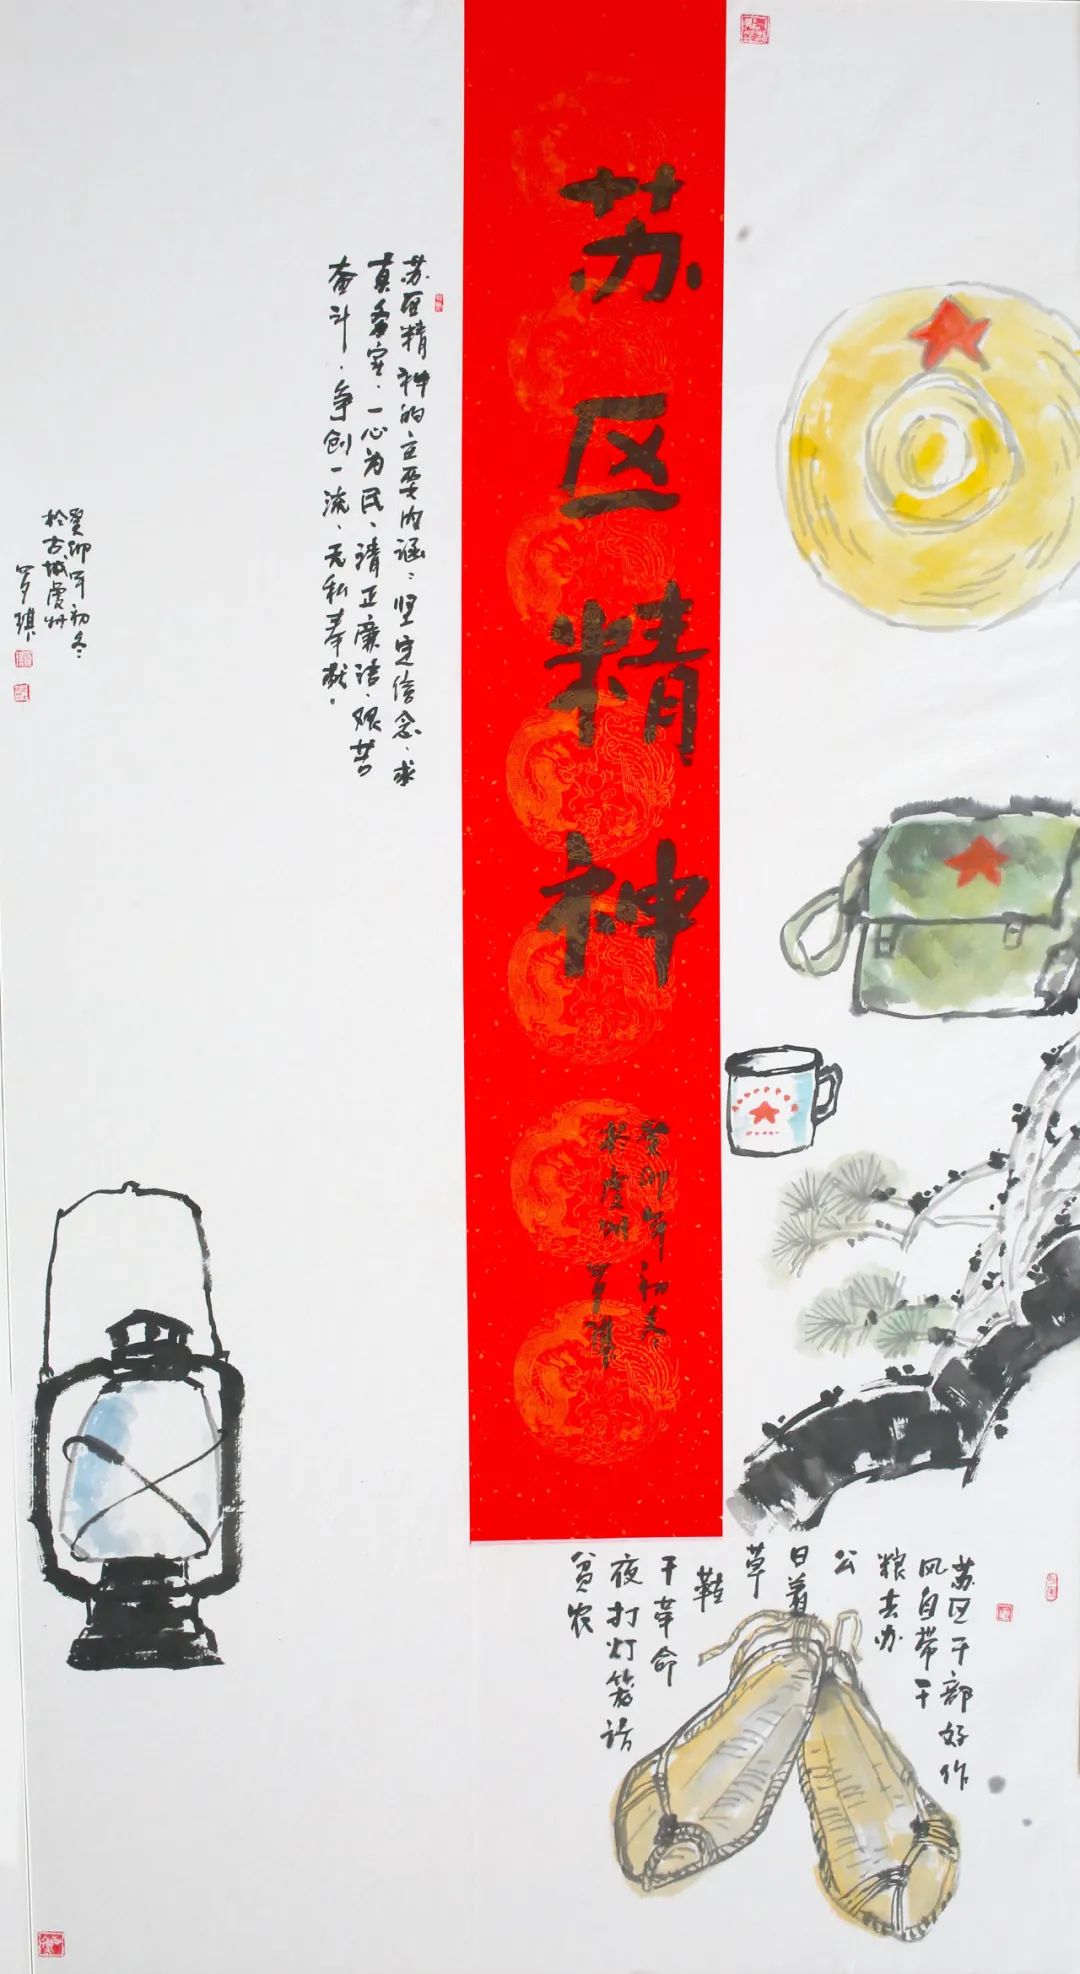 苏区精神
癸卯年初
於虔州 罗琪
苏区干部好作
风自带干
粮去办
公
日着
草
鞋
干革命
夜打灯笼访
贫农
苏区精神的主要内涵：坚定信念、求
真务实、一心为民、清正廉洁、艰苦
奋斗、争创一流、无私奉献。
癸卯年初冬
於古城虔州
罗琪